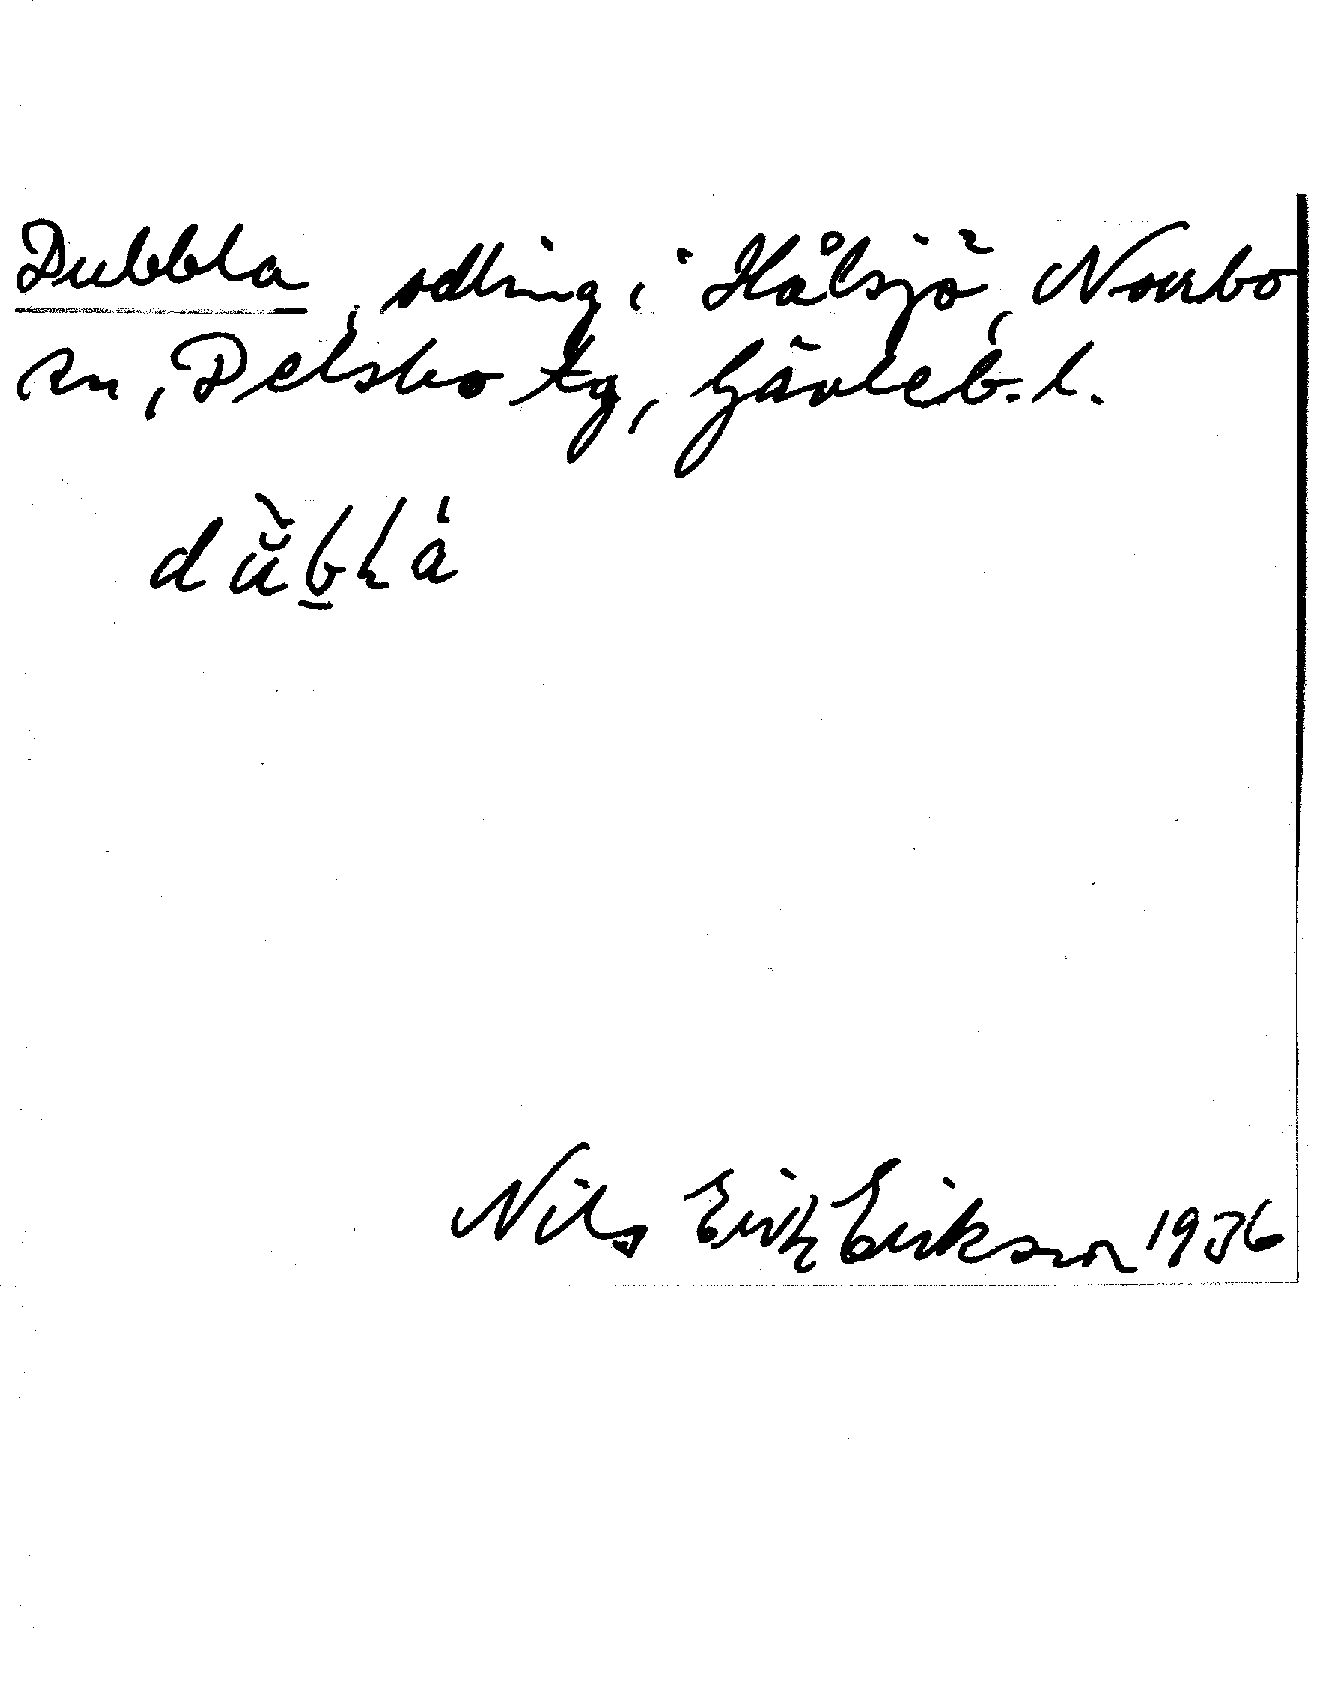 Dubbla, odling i Hålsjö, Norrbo
sn, Delsbo tg, Gävleb. l.
dŭ̀b̲lá
Nils Erik Erikson 1936